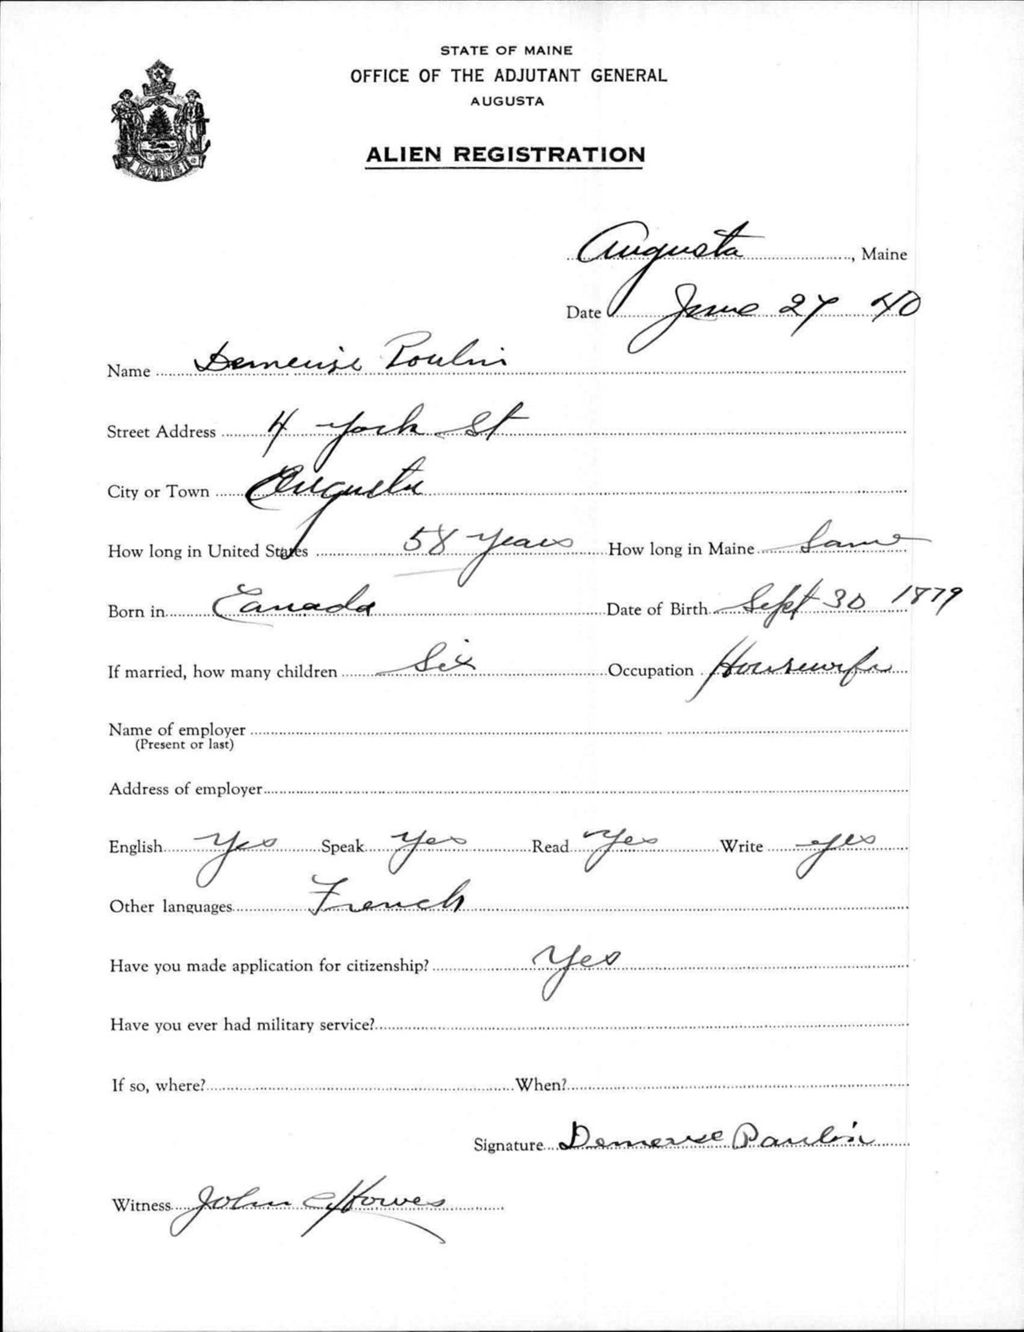 STATE OF MAINE
OFFICE OF THE ADJUTANT GENERAL
AUGUSTA
ALIEN REGISTRATION
MAINE
Augusta, Maine
Date June 27 40
Name Demerise Poulin
Street Address 4 York St
City or Town Augusta
How long in United States 58 years How long in Maine Same
Born in Canada Date of Birth Sept 30 1879
If married, how many children Six Occupation Housewife
Name of employer
(Present or last)
Address of employer
English Yes Speak Yes Read Yes Write yes
Other languages French
Have you made application for citizenship? Yes
Have you ever had military service?
If so, where? When?
Signature Demerise Paulin
Witness John C Howes